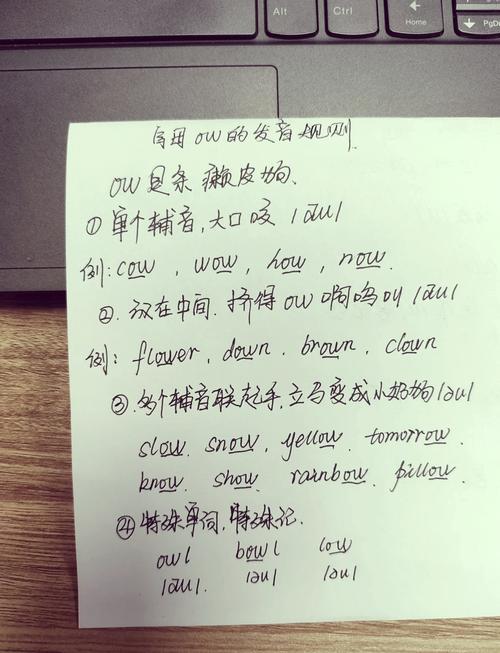 Alt
Ctrl
←
Home
↓
PgDn
字母ow的发音规则.
ow是条癞皮狗.
① 单个辅音,大口咬/aʊ/
例: cow , wow , how , now.
②. 放在中间. 挤得ow啊呜叫/aʊ/
例: flower, down . brown , clown
③.多个辅音联起手,立马变成小奶狗/əu/
slow. snow, yellow. tomorrow.
know. show. rainbow. pillow.
④特殊单词,特殊记.
owl bowl low
/aʊ/. /əu/ /əu/